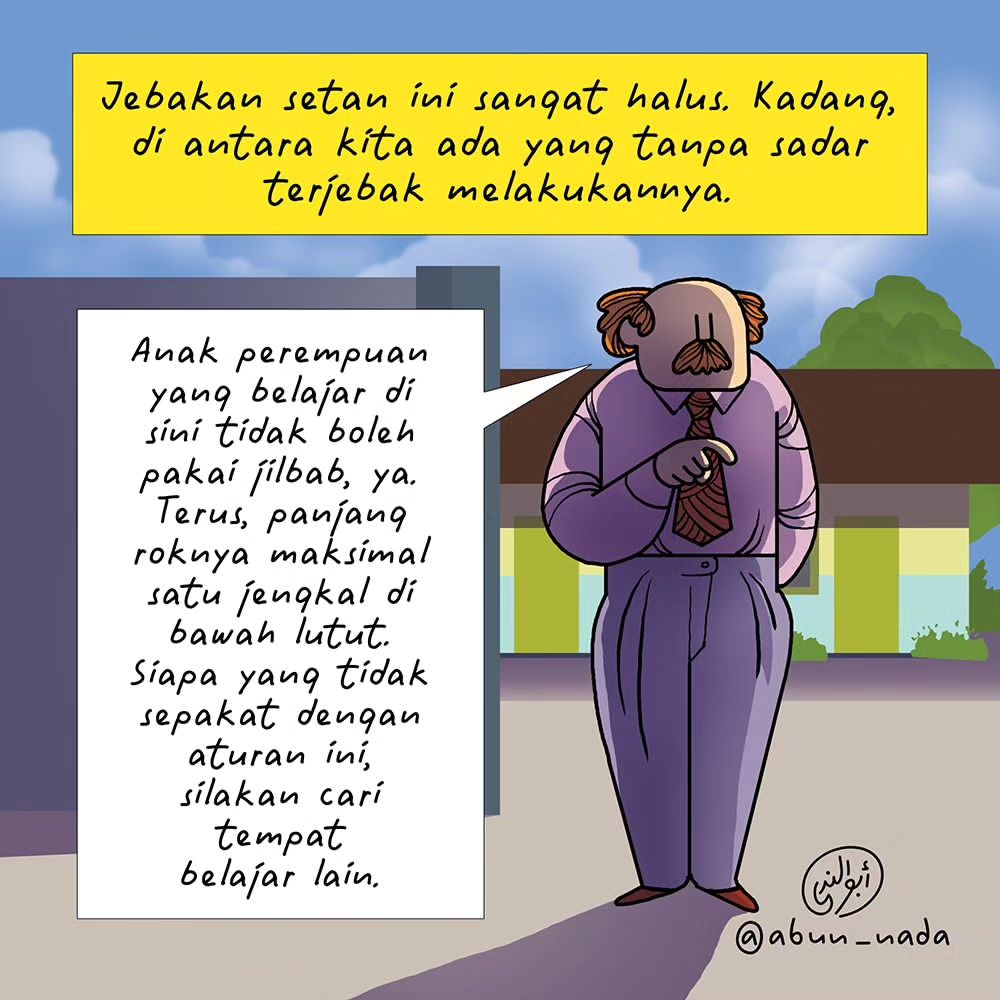 Jebakan setan ini sangat halus. Kadang,
di antara kita ada yang tanpa sadar
terjebak melakukannya.
Anak perempuan
yang belajar di
sini tidak boleh
pakai jilbab, ya.
Terus, panjang
roknya maksimal
satu jengkal di
bawah lutut.
Siapa yang tidak
sepakat dengan
aturan ini,
silakan cari
tempat
belajar lain.
أبو الندى
@abun_nada